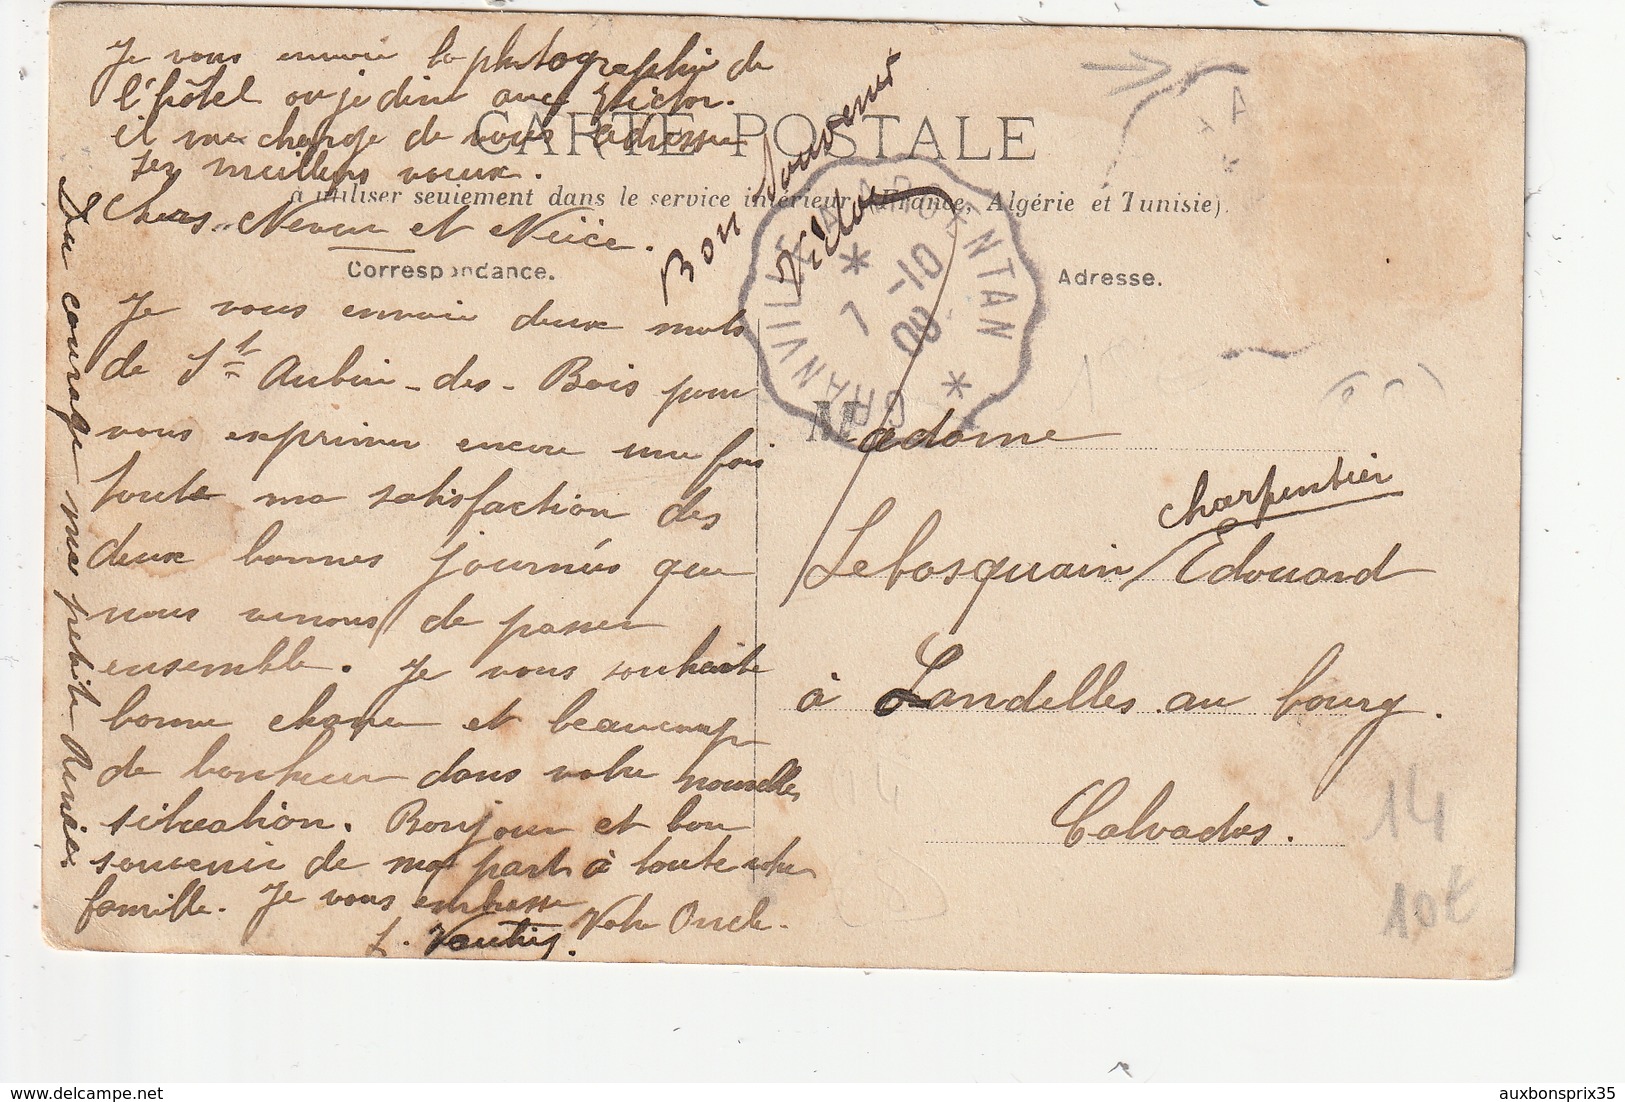 Je vous envoie la photographie de
l'hôtel ou je dine avec Victor.
il me charge de vous adresser
ses meilleurs voeux.
CARTE POSTALE
à utiliser seulement dans le service intérieur (France, Algérie et Tunisie).
Chers Neveu et Nièce.
Correspondance.
Je vous envoie deux mots
de St Aubin-des-Bois pour
vous exprimer encore une fois
toute ma satisfaction des
deux bonnes journées que
nous venons de passer
ensemble. Je vous souhaite
bonne chance et beaucoup
de bonheur dans votre nouvelles
situation. Bonjour et bon
souvenir de ma part à toute votre
famille. Je vous embrasse
Votre Oncle.
L. Vautier.
Du courage ma petite Renée
Bon Souvenir
Victor
GRANVILLE A ARGENTAN
7 -10
09
Adresse.
Madame
charpentier
Lebosquain / Edouard
à Landelles au bourg.
Calvados.
14
10€
www.delcampe.net
auxbonsprix35